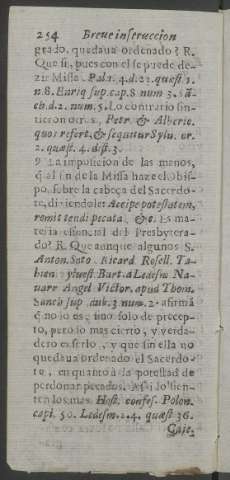 254 Breue instruccion
grado, quedaua ordenado? R.
Que si, pues con el se puede de-
zir Missa. Palr. 4. d. 22. quæst. 1.
n. 8. Enriq sup. cap. 8 num 3.
ch. d. 2. num. 5. Lo contrario sin-
tieron Petr. & Alberic.
quos refert, & sequitur Sylu. or.
2. quæst. 4. dist. 3.
9 La imposicion de las manos,
q al fin de la Missa haze el obis-
po, sobre la cabeça del Sacerdo-
te, diziendole: Accipe potestatem,
remittendi pecata, &c. Es ma-
teria essencial del Presbytera-
do? R. Que aunque algunos S.
Anton. Soto. Ricard Rosell. Ta-
bien. yluest Bart. a Ledesm Na-
uarr Angel Victor. apud Thom.
Sanch sup dub. 3 num. 2. afirmã
q no lo es, sino solo de precep-
to, pero lo mas cierto, y verda-
dero es serlo, y que sin ella no
quedaua ordenado el Sacerdo-
te, en quanto à la potestad de
perdonar pecados. Assi lo sien-
ten los mas. Host. confes. Polon.
capi. 50. Ledesm. 2.4. quæst 36.
Caie.